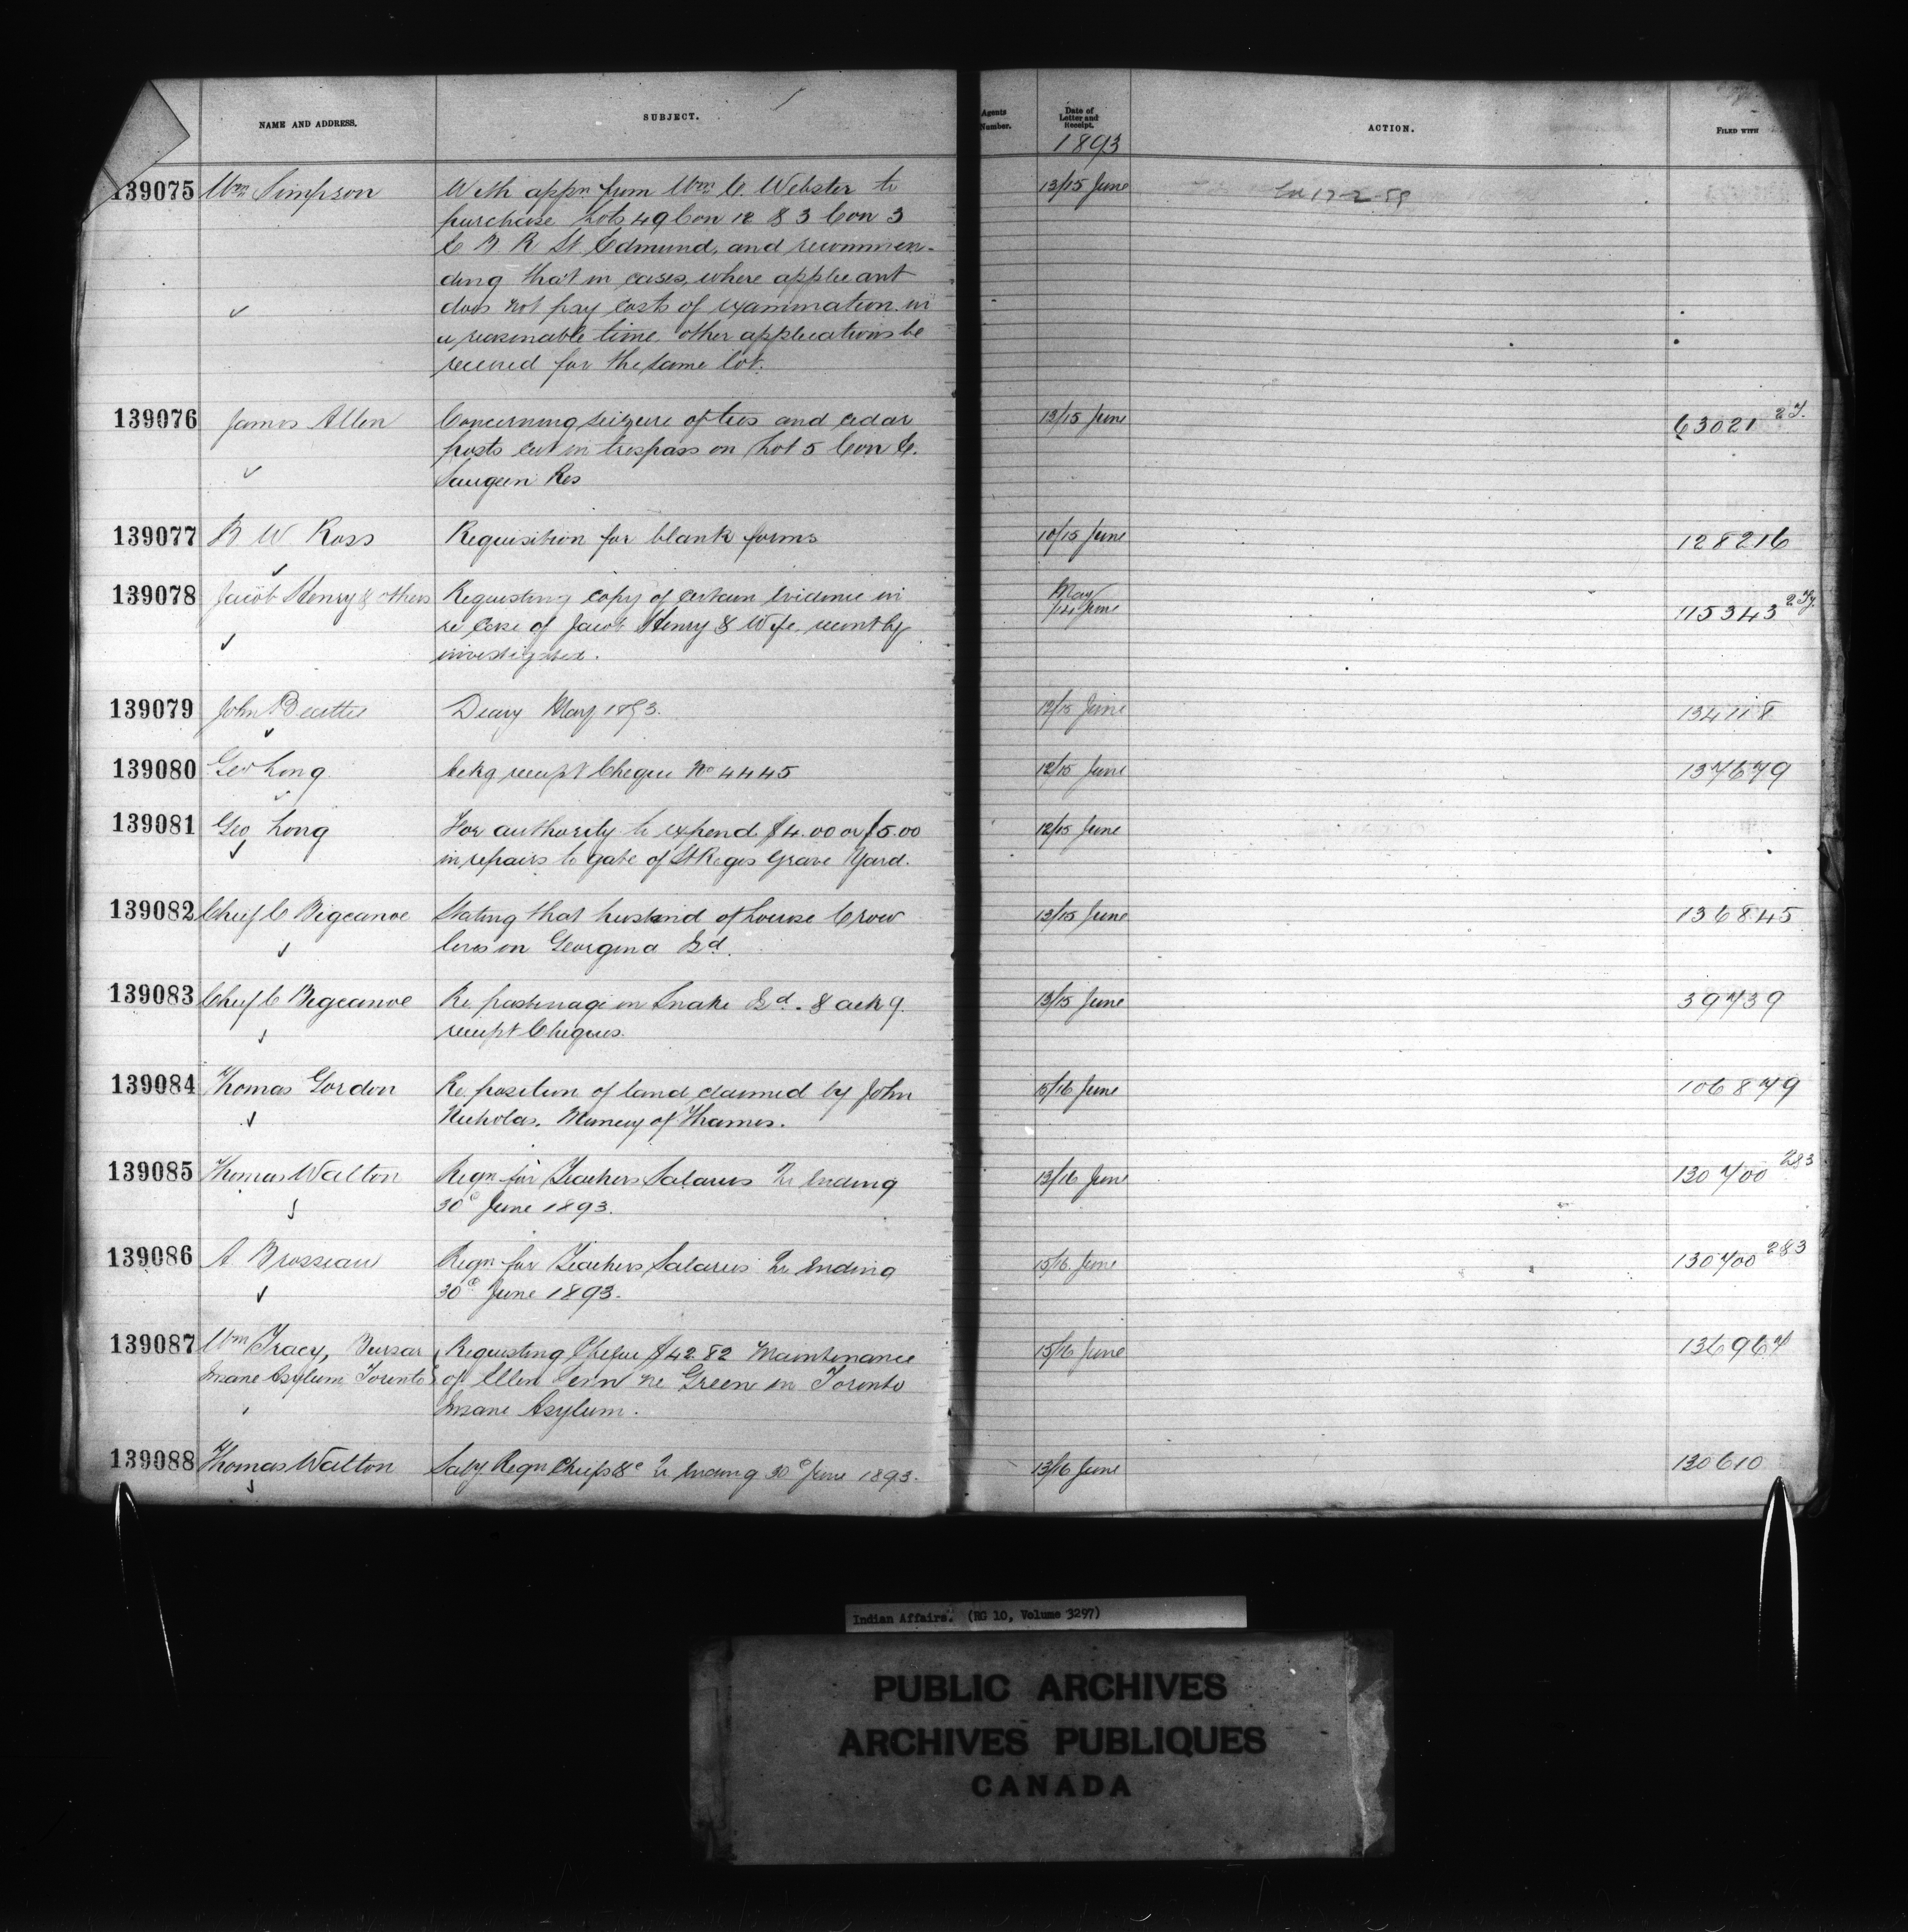 NAME AND ADDRESS.
SUBJECT.
Agents Number.
Date of Letter and Receipt.
ACTION.
FILED WITH
1893
139075 Wm Simpson
With appn from Wm C. Webster to
purchase Lots 49 Con 12 & 3 Con 3
E B R St Edmund, and recommen-
ding that in cases, where applicant
does not pay costs of examination in
a reasonable time, other applications be
received for the same lot.
13/15 June
139076 James Allen
Concerning seizure of ties and cedar
posts cut in trespass on Lot 5 Con C.
Saugeen Res
13/15 June
63021
139077 B W Ross
Requisition for blank forms
10/15 June
128216
139078 Jacob Henry & others
Requesting copy of certain evidence in
re case of Jacob Henry & Wife, recently
investigated.
May
/14 June
115343
139079 John Beattie
Diary May 1893.
12/15 June
134118
139080 Geo Long
Ackg receipt Cheque No 4445
12/15 June
137679
139081 Geo Long
For authority to expend $4.00 or $5.00
in repairs to gate of St Regis Grave Yard.
12/15 June
139082 Chief C Bigcanoe
Stating that husband of Louise Crow
lives on Georgina Isd.
13/15 June
136845
139083 Chief C Bigcanoe
Re pasturage on Snake Isd. & ackg
receipt Cheques.
13/15 June
39739
139084 Thomas Gordon
Re position of land claimed by John
Nicholas. Muncey of Thames.
15/16 June
106879
139085 Thomas Walton
Reqn for Teachers Salaries Qr Ending
30th June 1893.
13/16 June
130700 283
139086 A Brosseau
Reqn for Teachers Salaries Qr Ending
30th June 1893.
15/16 June
130700 283
139087 Wm Tracy, Bursar
Insane Asylum, Toronto
Requesting Cheque $42.82 Maintenance
of Ellen ne Green in Toronto
Insane Asylum.
15/16 June
136967
139088 Thomas Walton
Saly Reqn Chiefs &c Qr Ending 30th June 1893.
13/16 June
130610
Indian Affairs. (RG 10, Volume 3297)
PUBLIC ARCHIVES
ARCHIVES PUBLIQUES
CANADA